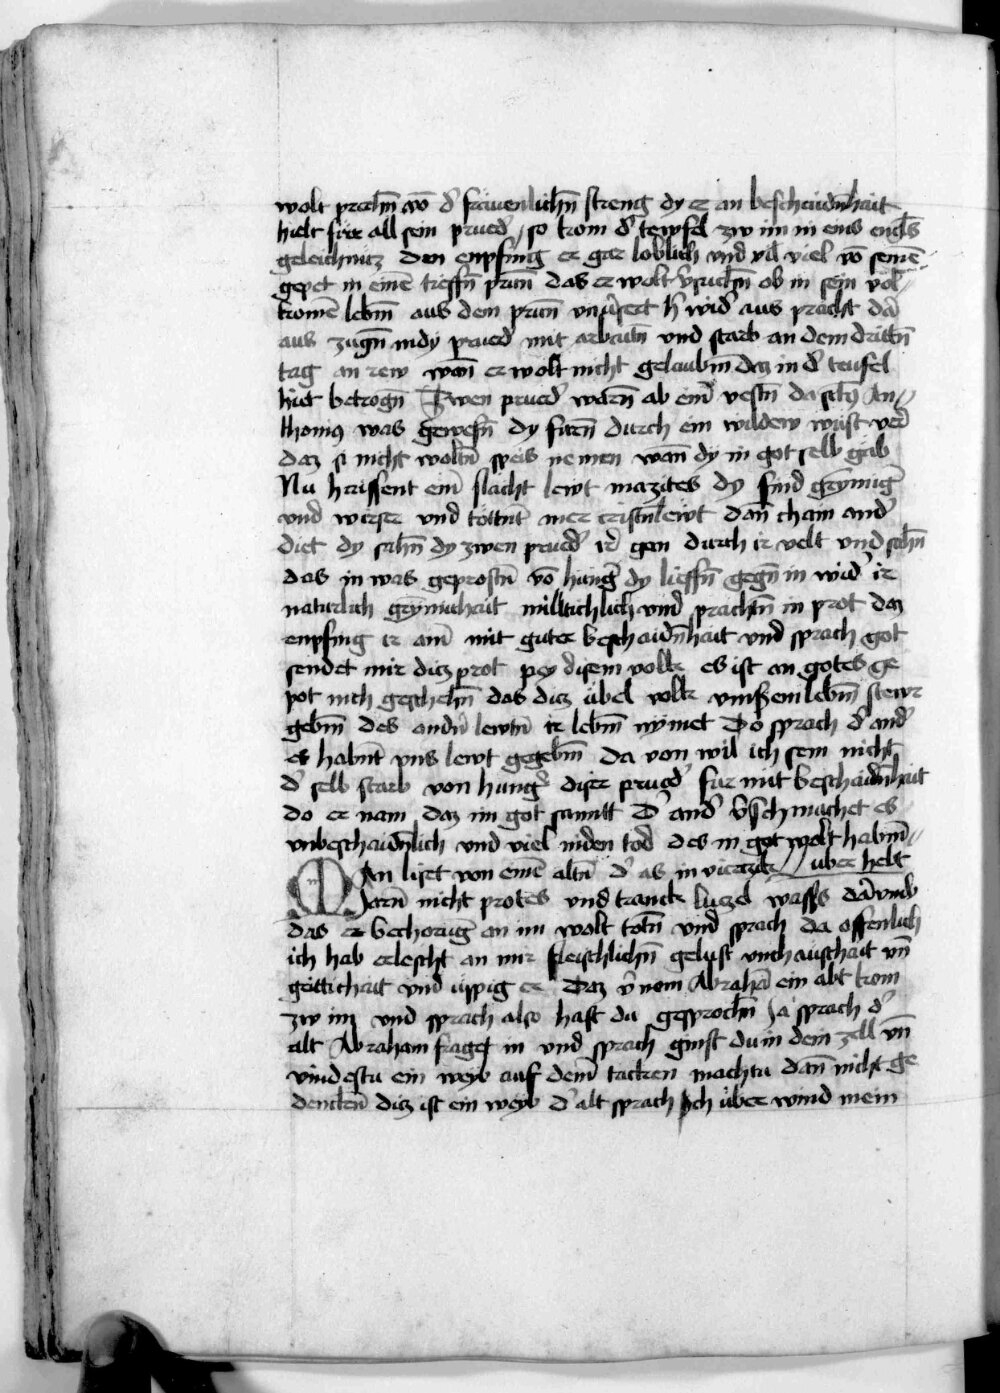 wolt prechñ võ d' fräuenlichñ streng dy er an beschaidñhait
hielt für all sein prued' / so kom d' tewfel zw im in eins engels
geleichnüz den enpfing er gar loblich vnd vil viel võ seinē
gepet in einē tieffñ prun das er wolt v'suchñ ob in sein vol
komē lebm̄ aus dem prun vnu'sert h' wid' aus pracht da
aus zugñ in dy prued' mit arbaitñ vnd starb an dem drittñ
tag an rew wañ er wolt nicht gelaubm̄ daz in d' teufel
hiet betrogñ Zwen prued' warñ ab eim̄ vestñ da sand An
thonius was gewesñ dy furñ durch ein wildew wüst ver
daz si nicht woltñ speis nemen wañ dy in got selb gäb
Nu haissent eim̄ slacht lewt mazites dy sind grymmig'
vnd wirser vnd tottnt mer cristñlewt dañ chain and'
diet dy sahñ dy zwen prued' ir gen durch ir velt vnd sahñ
das in was geprostñ võ hung' dy lieffñ gegñ in wid' ir
naturlich grymichait milltichlich vnd prachtñ in prot daz
enpfing ir ain' mit guter beschaidñhait vnd sprach got
sendet mir diz prot pey disem volk es ist an gotes ge
pot nich geschehñ das diz übel volk vnsrem lebm̄ stewr
gebm̄ des andñ lewtñ ir lebm̄ nymet Do sprach d' and'
es habnt vns lewt gegebm̄ da von wil ich sein nicht
d' selb starb von hung' diser prued' fur mit beschaidñhait
do er nam daz im got sanntt D' and' v'schmachet es
vnbeschaidñlich vnd viel in den tod des in got wolt habm̄
MAn list von einē altñ d' as in vierzik / über hebt
Jarñ nicht protes vnd tranck luzel wassers dar vmb
das er bechorug an im wolt totñ vnd sprach da offenlich
ich hab erlescht an mir fleischlichñ gelust vnchäuschait vñ
geittichait vnd üppig er Daz v'nom Abrahã ein abt kom
zw im vnd sprach also hast du gesprochñ Ja sprach d'
alt Abraham fraget in vnd sprach ginst du in dein zell vñ
vindestu ein weyb auf deim̄ tacken machtu dañ nicht ge
denckñ diz ist ein weyb d' alt sprach Ich über wind mein